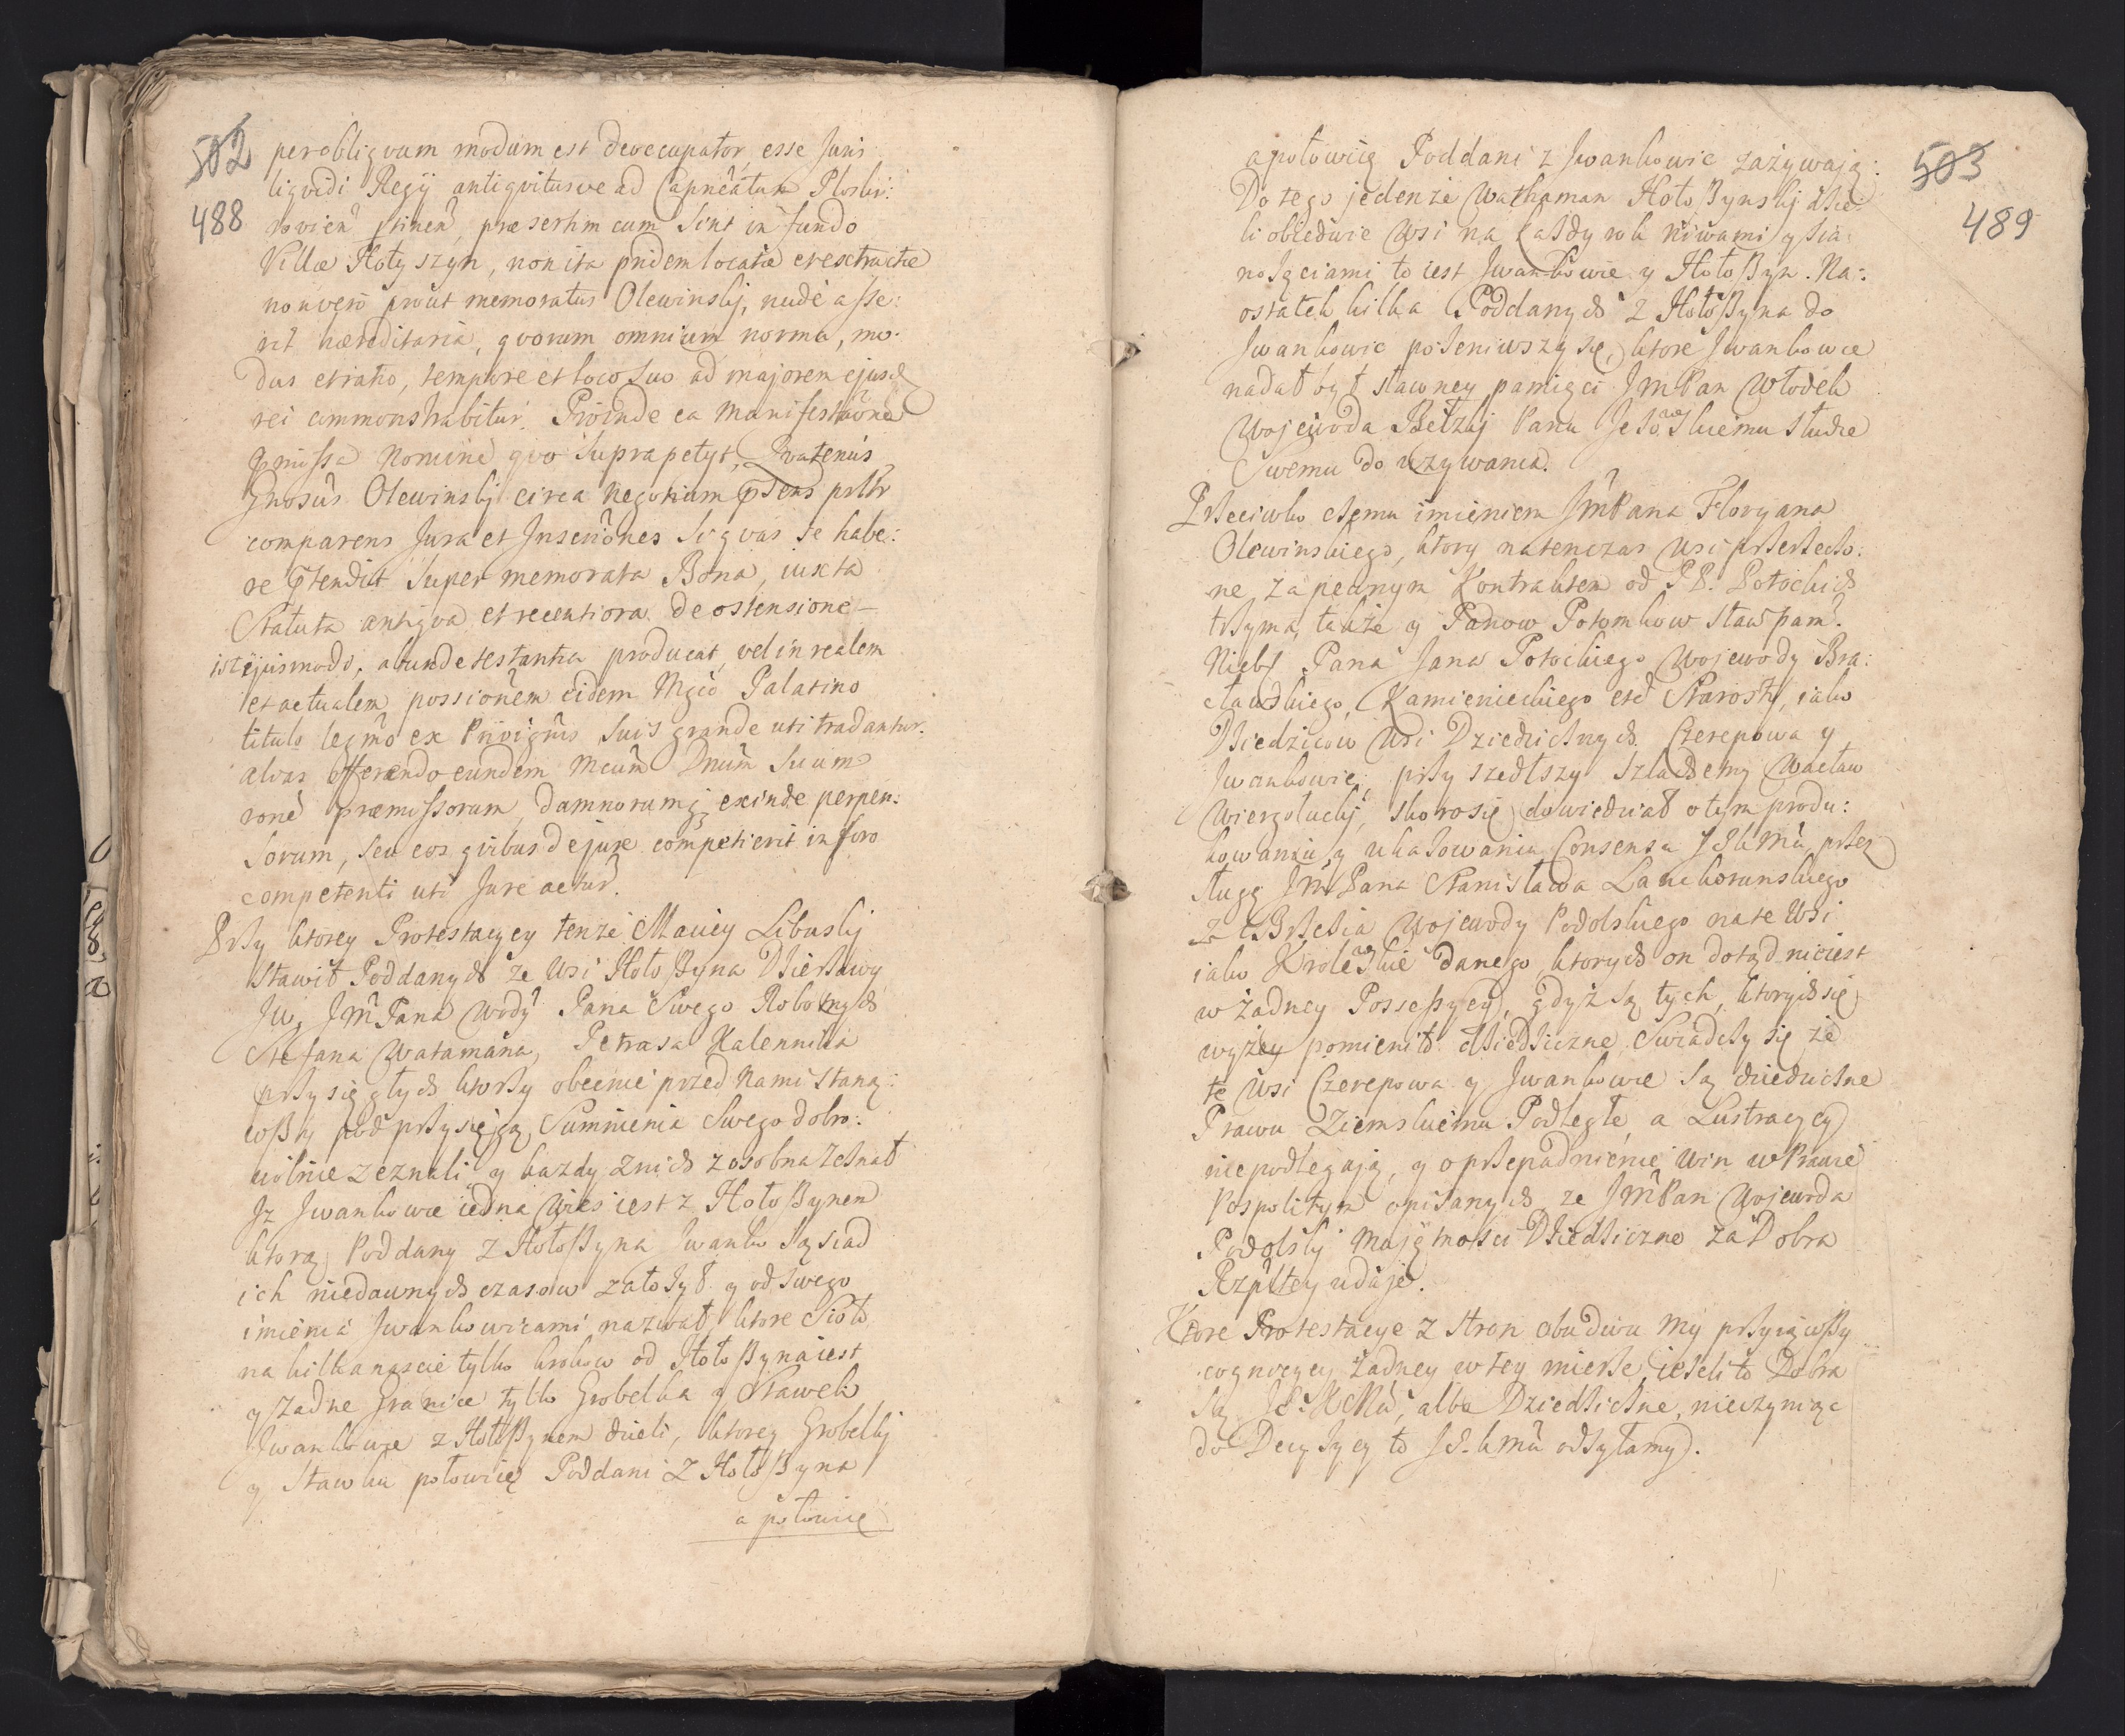 502
488
perobliqvum modum est deoccupator, esse Juris
liqvidi Regij antiqvitusve ad Capneatum Ploski:
rovien ptinen, præsertim cum Sint in fundo
Villæ Hołyszyn, non ita pridem locatæ erexstructæ
non vero prout memoratus Olewinskj, nudè asse:
rit hæreditaria, qvorum omnium norma, mo.
dus et ratio, tempore et loco Suo ad majorem ejusd
rei commonstrabitur. Proinde ea manifestaone
pmissa Nomine qvo Supra petyt, Qvatenus
Gnosus Olewinskj circa negotium psens psltr
comparens Jura et Inscriones Si qvas Se habe:
re ptendit Super memorata Bona, iuxta
Statuta antiqva et recentiora de ostensione
istejusmodo, abunde testantia producat, vel in realem
et actualem possionem eidem Mgco Palatino
titulo legmo ex Privignis Suis grande uti tradantur.
alias offerendo eundem Mcum Dnum Suum
rone præmissorum, damnorumq exinde perpen:
sorum, seu eos qvibus de jure competierit in foro
competenti uti Jure actur.
Przy ktorey Protestacyey tenże Maciey Libuskj
Stawił Poddanych ze Wsi Hołoszyna Dzierżawy
Jw, Jm Pana Wdy Pana Swego Robotnych
Stefana Watamana, Petrasa Kalennika
przysięgłych ktorzy obecnie przed Nami Staną:
wszy pod przysięgą, Sumnienia Swego dobro:
wolnie zeznali y kazdy znich zosobna zeznał
Jz Jwankowce iedna Wies iest z Hołoszynem
ktorą Poddany z Hołoszyna Jwanko Sąsiad
ich niedawnych czasow założył y od Swego
imienia Jwankowcami nazwał, ktore Sioło
na kilkanascie tylko krokow od Hołoszyna iest
y żadne Granice tylko Grobelka y Stawek
Jwankowce z Hołoszynem dzieli, ktorey Grobelki
y Stawku połowicę Poddani z Hołoszyna
a połowicę
503
489
a połowicę Poddani z Jwankowic zażywaią:
Do tego jedenże Wathaman Hołoszynskj dzie:
li obiedwie Wsi na każdy rok Niwami y Sia:
nożęciami to iest Jwankowce y Hołoszyn. Na:
ostatek kilka Poddanych z Hołoszyna do
Jwankowic pożeniwszy się, ktore Jwankowce
nadał był sławney pamięci Jm Pan Włodek
Wojewoda Bełzkj Panu Jeżowskiemu Słudze
Swemu do używania.
Przeciwko czemu imieniem Jm Pana Floryana
Olewinskiego, ktory natenczas Wsi przerzeczo:
ne, za pewnym Kontraktem od PP. Potockich
trzyma, także y Panow Potomkow Sław pam.
Niebł Pana Jana Potockiego Wojewody Bra:
cławskiego, Kamienieckiego etc Starosty, iako
Dziedzicow Wsi Dziedzicznych Czerepowa y
Jwankowic, przyszedłszy Szlachetny Wacław
Wiergołuckj, skoro się dowiedział o tym produ:
kowaniu y ukazowaniu Consensu JKMci, przez
sługę Jm Pana Stanisława Lanckorunskiego
z Brzezia Wojewody Podolskiego na te Wsi
iako Krolewskie danego, ktorych on dotąd nie iest
w żadney Possessyey, gdyż są tych, ktorych się
wyżey pomienił dziedziczne, Swiadczy się że
te Wsi Czerepowa y Jwankowce Są dziedziczne
Prawu Ziemskiemu Podległe, a Lustracyey
nie podlegają, y o przepadnienie Win w Prawie
Pospolitym opisanych, ze Jm Pan Wojewoda
Podolskj majętnosci Dziedziczne za Dobra
Rzpltey udaje.
Ktore Protestacye z Stron obudwu my przyiąwszy
cognicyey żadney w tey mierze, ieżeli to Dobra
są JKMci, albo Dziedziczne, nieczyniąc
do Decyzyey to JKMci odsyłamy.